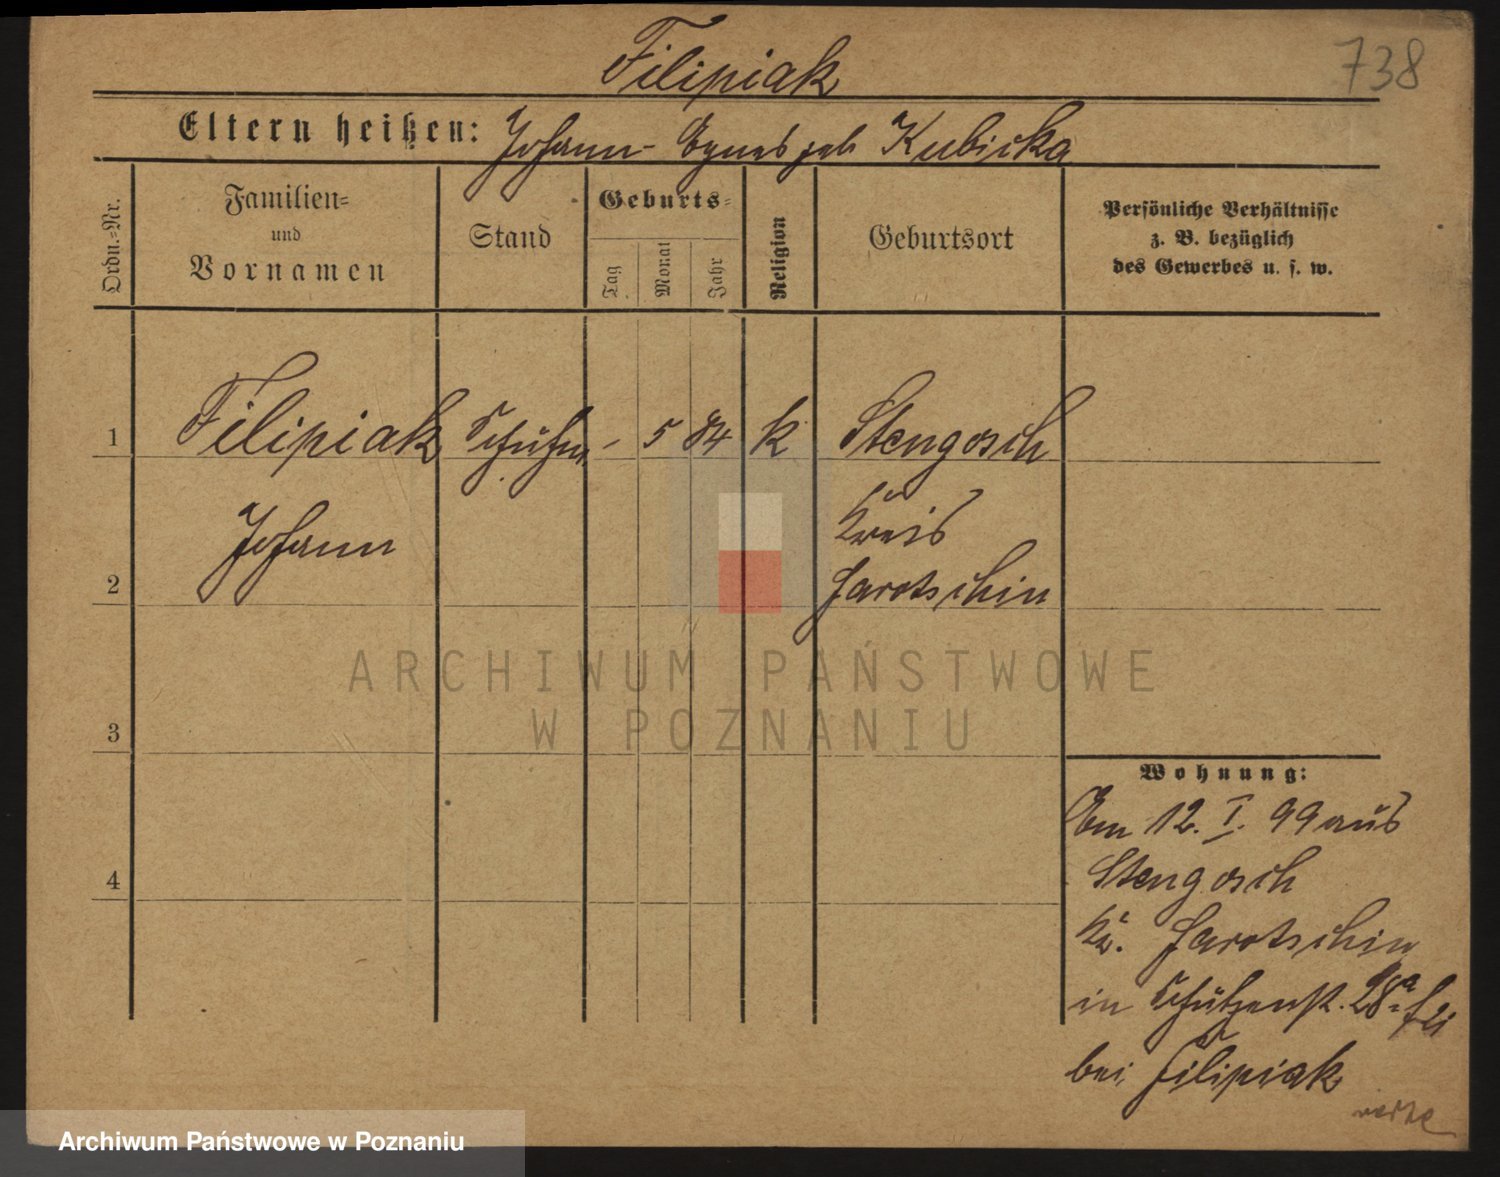 Filipiak
738
Eltern heißen: Johann - Agnes geb Kubicka
Ordn.=Nr.
Familien=
und
Vornamen
Stand
Geburts=
Tag
Monat
Jahr
Religion
Geburtsort
Persönliche Verhältnisse
z. B. bezüglich
des Gewerbes u. s. w.
1 Filipiak - 5 84 k Stengosch
Johann
Kreis
2 Jarotschin
ARCHIWUM PAŃSTWOWE
W POZNANIU
3
Wohnung:
Am 12. I. 99 aus
4 Stengosch
Kr. Jarotschin
in Schützenstr. 28a
bei Filipiak
Archiwum Państwowe w Poznaniu